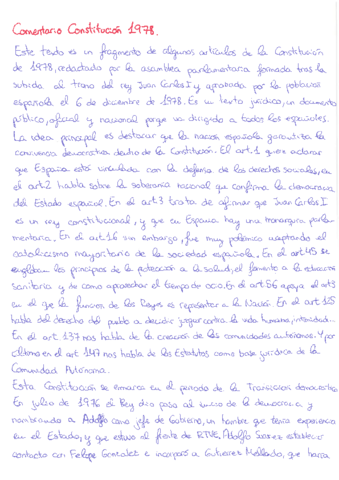 Comentario Constitución 1978.
Este texto es un fragmento de algunos artículos de la Constitución
de 1978, redactado por la asamblea parlamentaria formada tras la
subida al trono del rey Juan Carlos I y aprobada por la población
española el 6 de diciembre de 1978. Es un texto jurídico, un documento
público, oficial y nacional porque va dirigido a todos los españoles.
La idea principal es destacar que la nación española garantiza la
convivencia democrática dentro de la Constitución. El art.1 quiere aclarar
que España está vinculada con la defensa de los derechos sociales, en
el art.2 habla sobre la soberanía nacional que confirma la democracia
del Estado español. En el art.3 trata de afirmar que Juan Carlos I
es un rey constitucional, y que en España hay una monarquía parla-
mentaria. En el art.16 sin embargo, fue muy polémico aceptando el
catolicismo mayoritario de la sociedad española. En el art.45 se
engloban los principios de la protección a la salud, el fomento a la educación
sanitaria y de como aprovechar el tiempo de ocio. En el art.56 apoya el art3
en el que la función de los Reyes es representar a la Nación. En el art 125
habla del derecho del pueblo a decidir, juzgar contra la vida humana, intimidad...
En el art. 137 nos habla de la creación de las comunidades autónomas. Y por
último en el art 147 nos habla de los Estatutos como base jurídica de la
Comunidad Autónoma.
Esta Constitución se enmarca en el periodo de la Transición democrática
En julio de 1976 el Rey dio paso al inicio de la democracia y
nombrando a Adolfo como jefe de Gobierno, un hombre que tenía experiencia
en el Estado, y que estuvo al frente de RTVE. Adolfo Suárez estableció
contacto con Felipe González e incorporó a Gutiérrez Mellado, que haría